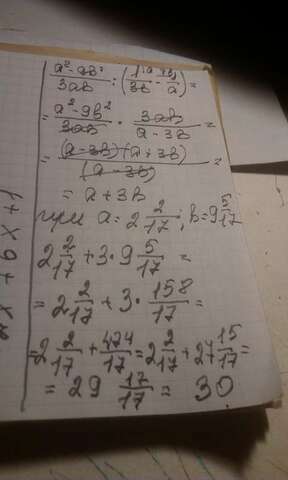 (a² - 9b²)/(3ab) : (1/(3b) - 1/a) =
= (a² - 9b²)/(3ab) · (3ab)/(a - 3b) =
= ((a - 3b)(a + 3b))/(a - 3b) =
= a + 3b
при a = 2 2/17; b = 9 5/17
2 2/17 + 3 · 9 5/17 =
= 2 2/17 + 3 · 158/17 =
= 2 2/17 + 474/17 = 2 2/17 + 27 15/17 =
= 29 17/17 = 30